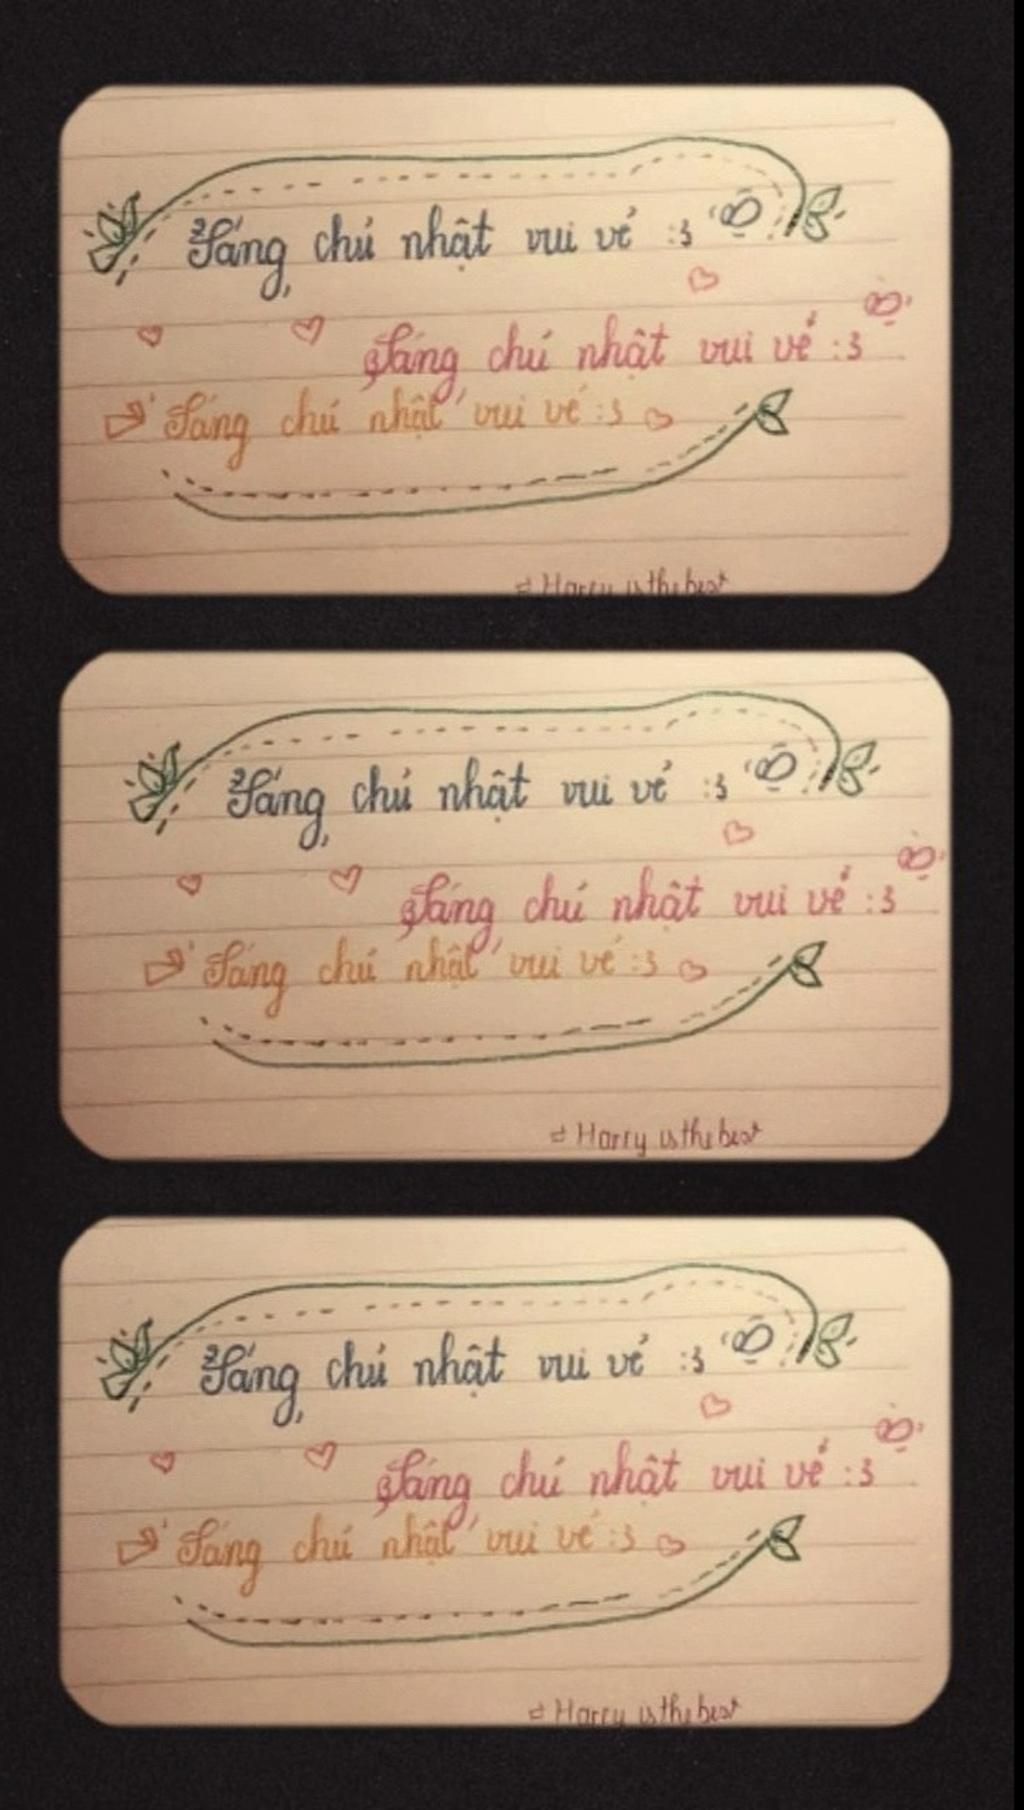 Sáng chủ nhật vui vẻ :3
Sáng chủ nhật vui vẻ :3
Sáng chủ nhật vui vẻ :3
# Harry is the best
Sáng chủ nhật vui vẻ :3
Sáng chủ nhật vui vẻ :3
Sáng chủ nhật vui vẻ :3
# Harry is the best
Sáng chủ nhật vui vẻ :3
Sáng chủ nhật vui vẻ :3
Sáng chủ nhật vui vẻ :3
# Harry is the best